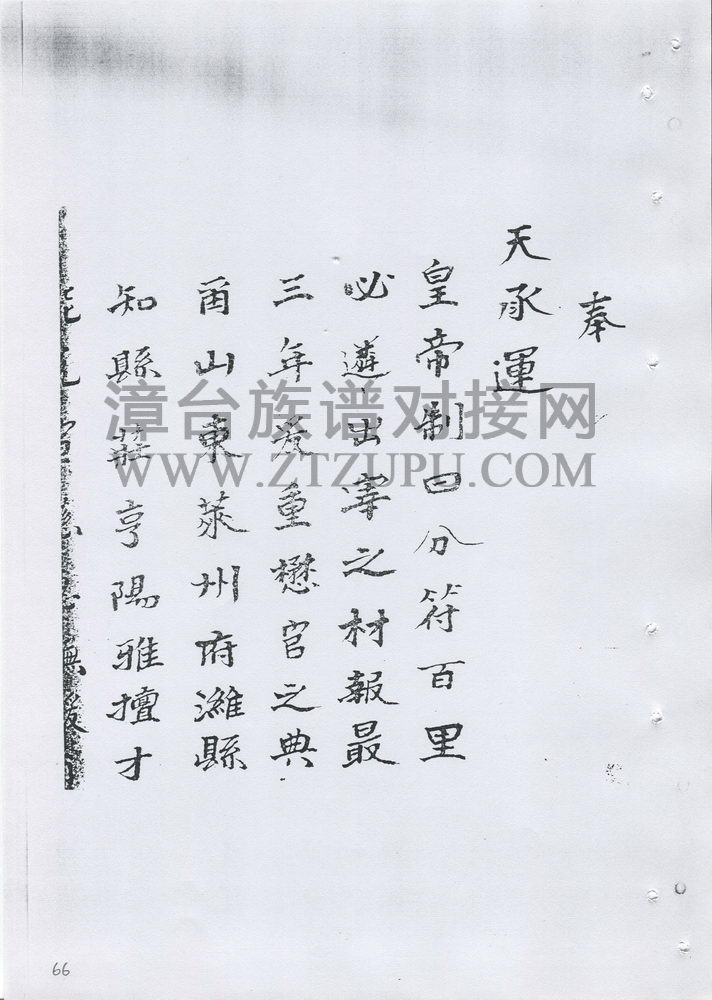 奉
天承運
皇帝制曰分符百里
必遴出宰之材報最
三年爰重懋官之典
甯山東萊州府濰縣
知縣莊亨陽雅擅才
漳台族谱对接网
WWW.ZTZUPU.COM
66